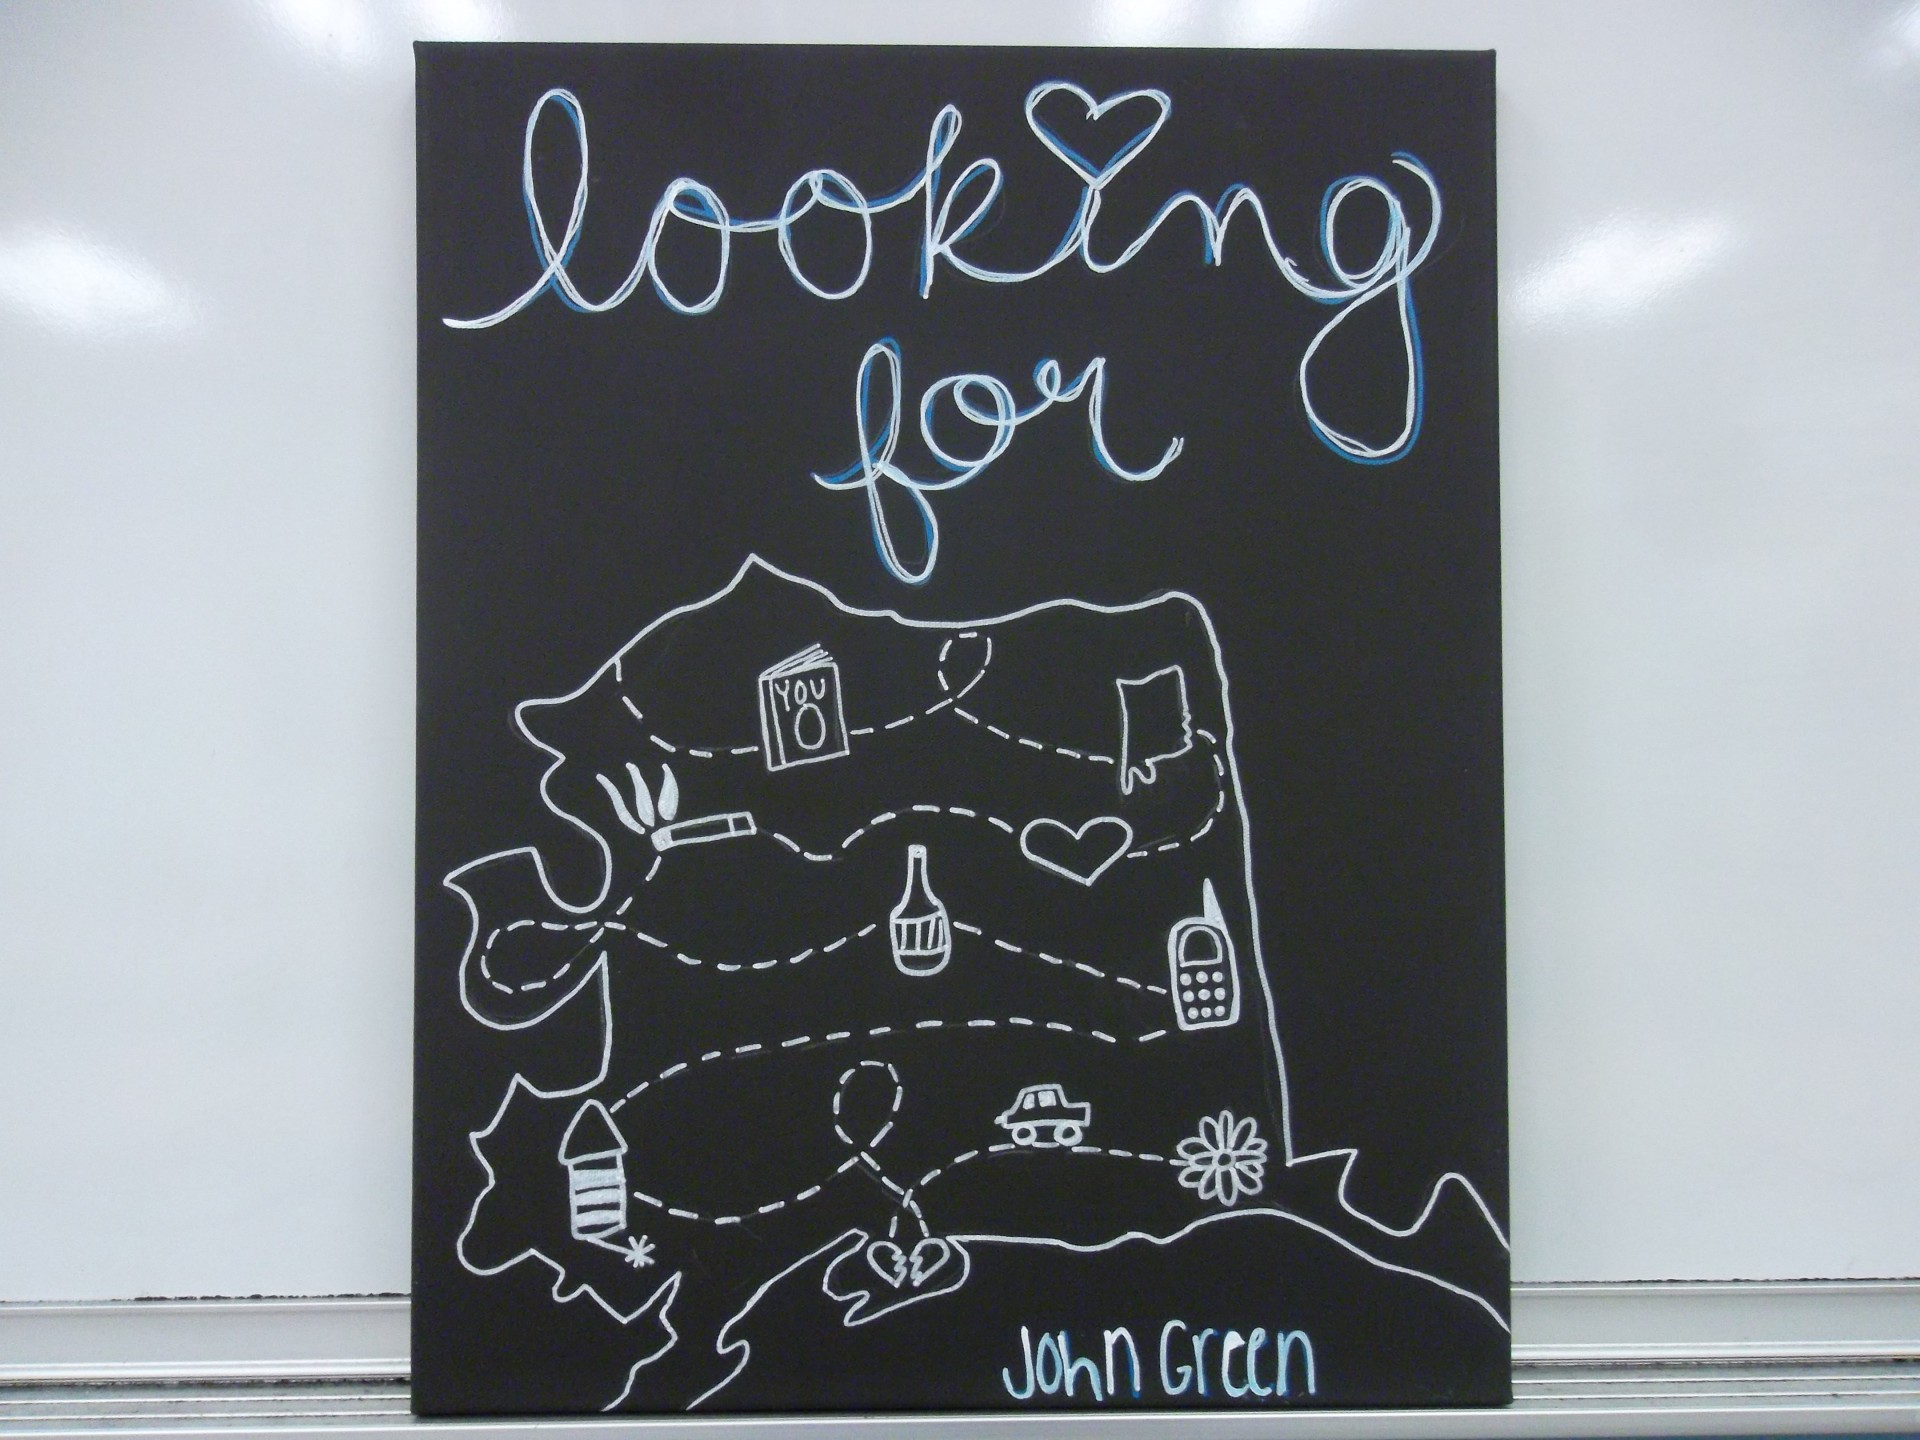 looking
for
YOU
John Green